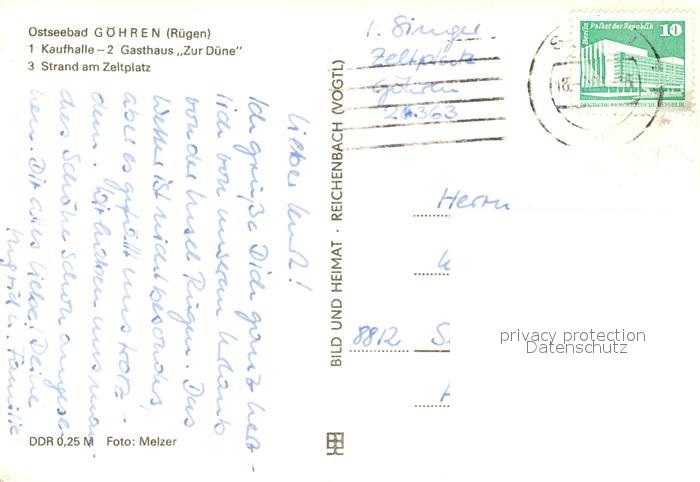 Ostseebad GÖHREN (Rügen)
1 Kaufhalle – 2 Gasthaus „Zur Düne"
3 Strand am Zeltplatz
Lieber Kurt!
Ich grüße Dich ganz herz-
lich von unserem Urlaub
von der Insel Rügen. Das
Wetter ist nicht besonders,
aber es gefällt uns trotz-
dem. Wir haben uns man-
ches Schöne schon angese-
hen. Dir alles Liebe! Deine
Ingrid u. Familie
DDR 0,25 M Foto: Melzer
BILD UND HEIMAT · REICHENBACH (VOGTL)
I. Singer
Zeltplatz
Göhren
2363
Berlin Palast der Republik 10
DEUTSCHE DEMOKRATISCHE REPUBLIK
18
Herrn
8812 S
privacy protection
Datenschutz